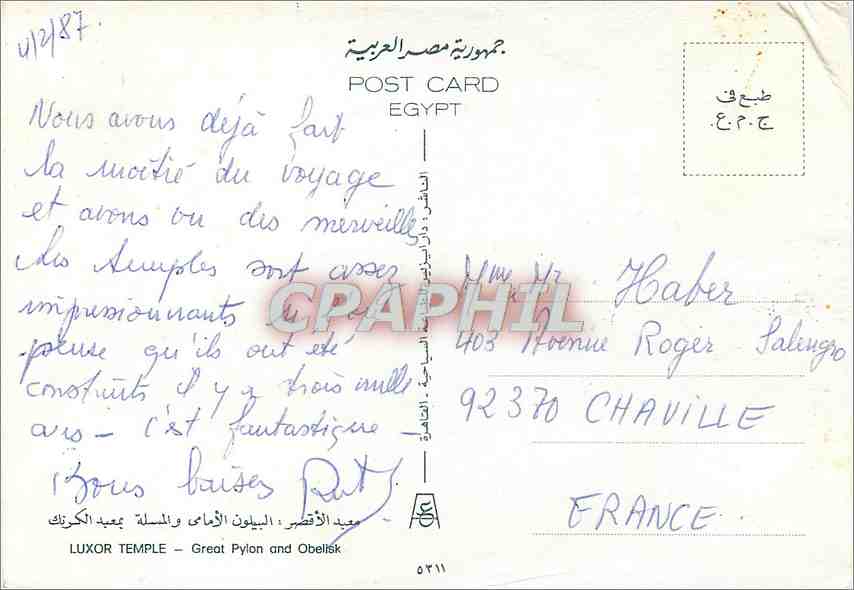 4/2/87.
جمهورية مصر العربية
POST CARD
EGYPT
طبع فى
ج.م.ع.
Nous avons déjà fait
la moitié du voyage
et avons vu des merveilles
les temples sont assez
impressionnants si l'on
pense qu'ils ont été
construits il y a trois mille
ans - c'est fantastique -
Bons baisers Ruth
Mme Mr Haber
403 Avenue Roger Salengro
92370 CHAVILLE
FRANCE.
الناشر: دار السياحية - القاهرة
CPAPHIL
معبد الأقصر: البيلون الأمامى والمسلة بمعبد الكرنك
LUXOR TEMPLE – Great Pylon and Obelisk
٥٣١١